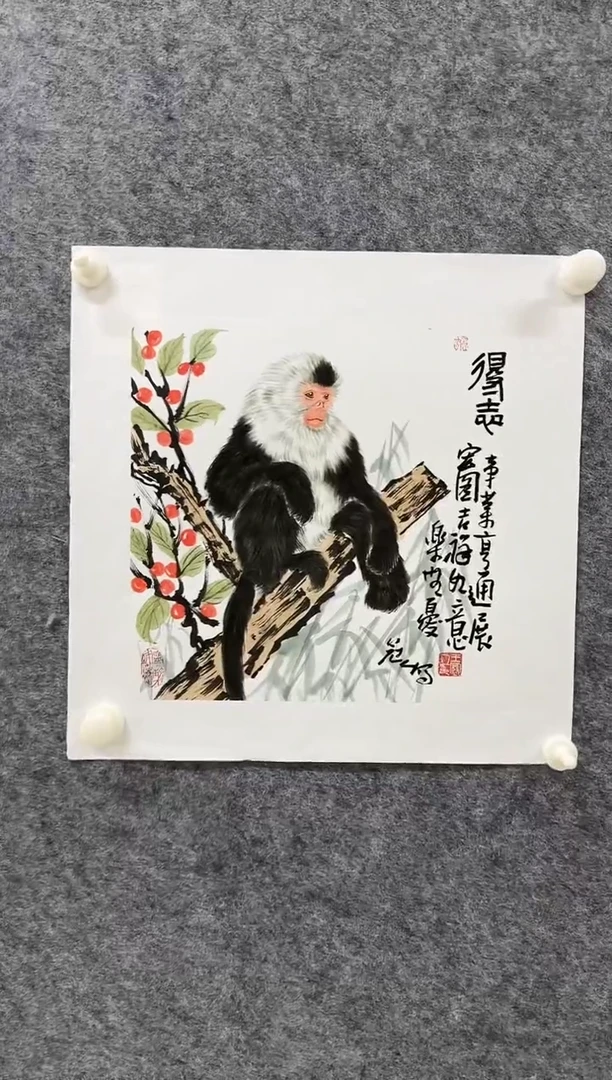 得志
事業亨通展
宏圖吉祥如意
樂無憂